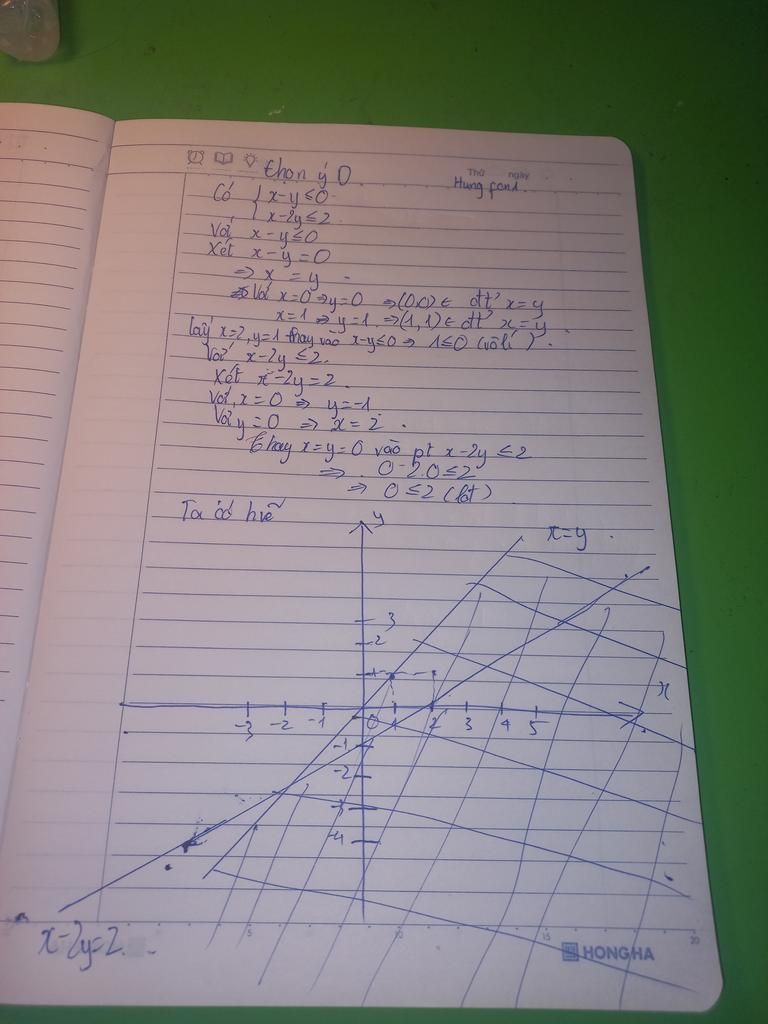 Chọn ý D
Thứ ngày
Hưng
Có { x-y ≤ 0
x-2y ≤ 2
Với x-y ≤ 0
Xét x-y = 0
⇒ x = y
Với x=0 ⇒ y=0 ⇒ (0,0) ∈ đt' x=y
x=1 ⇒ y=1 ⇒ (1,1) ∈ đt' x=y.
Lấy x=2, y=1 thay vào x-y≤0 ⇒ 1≤0 (vô lí).
Với x-2y ≤ 2.
Xét x-2y = 2.
Với x=0 ⇒ y=-1
Với y=0 ⇒ x=2.
Thay x=y=0 vào pt x-2y ≤ 2
⇒ 0-2.0 ≤ 2
⇒ 0 ≤ 2
Ta có hvẽ
y
x=y
3
2
1
x
-3 -2 -1 0 1 2 3 4 5
-1
-2
-3
-4
x-2y=2.
5 10 15 20
HONGHA